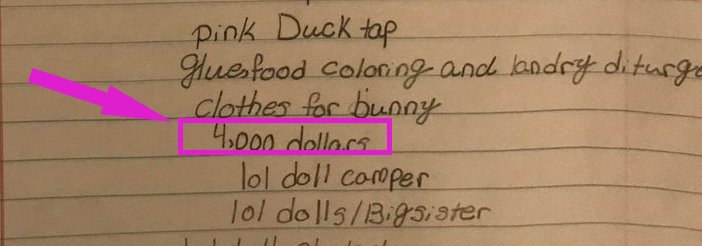 pink Duck tap
glue,food coloring and landry diturge
clothes for bunny
4,000 dollars
lol doll camper
lol dolls/Bigsister